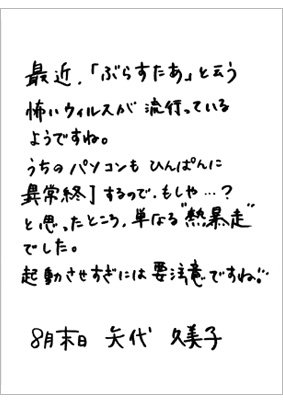 最近,「ぶらすたあ」と云う
怖いウィルスが 流行っている
ようですね。
うちの パソコンも ひんぱんに
異常終了するので、もしや…?
と思ったところ, 単なる"熱暴走"
でした。
起動させすぎには 要注意ですね!…
8月末日 矢代 久美子